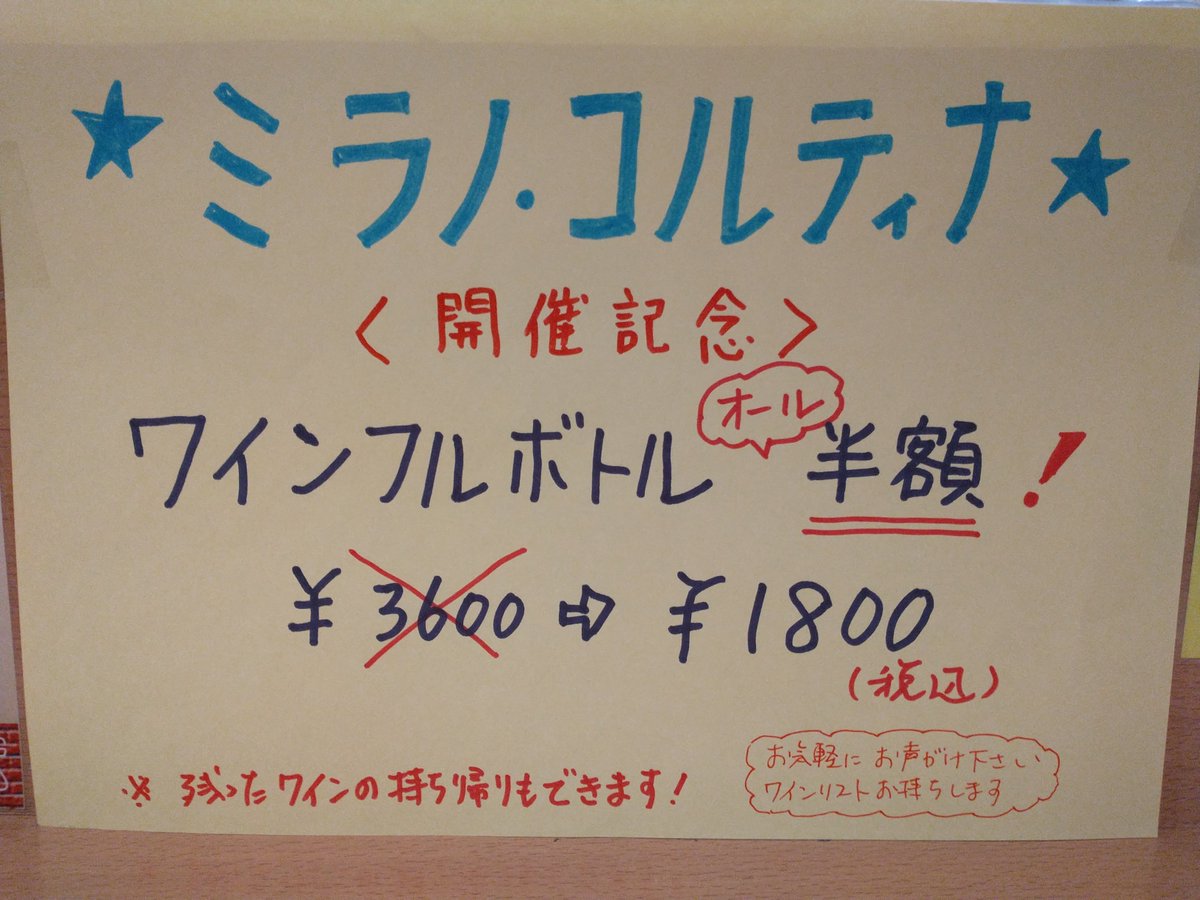 ★ミラノ・コルティナ★
<開催記念>
オール
ワインフルボトル 半額!
¥3600⇨¥1800
(税込)
※残ったワインの持ち帰りもできます!
お気軽にお声がけ下さい
ワインリストお持ちします